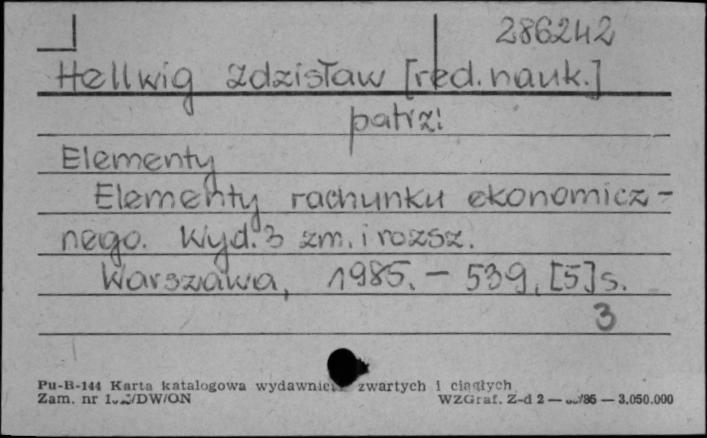 286242
Hellwig Zdzisław [red. nauk.]
patrz:
Elementy
Elementy rachunku ekonomicz-
nego. Wyd. 3 zm. i rozsz.
Warszawa, 1985. – 539, [5] s.
3
Pu-B-144 Karta katalogowa wydawnictw zwartych i ciągłych
Zam. nr /DW/ON WZGraf. Z-d 2 — /86 — 3.050.000